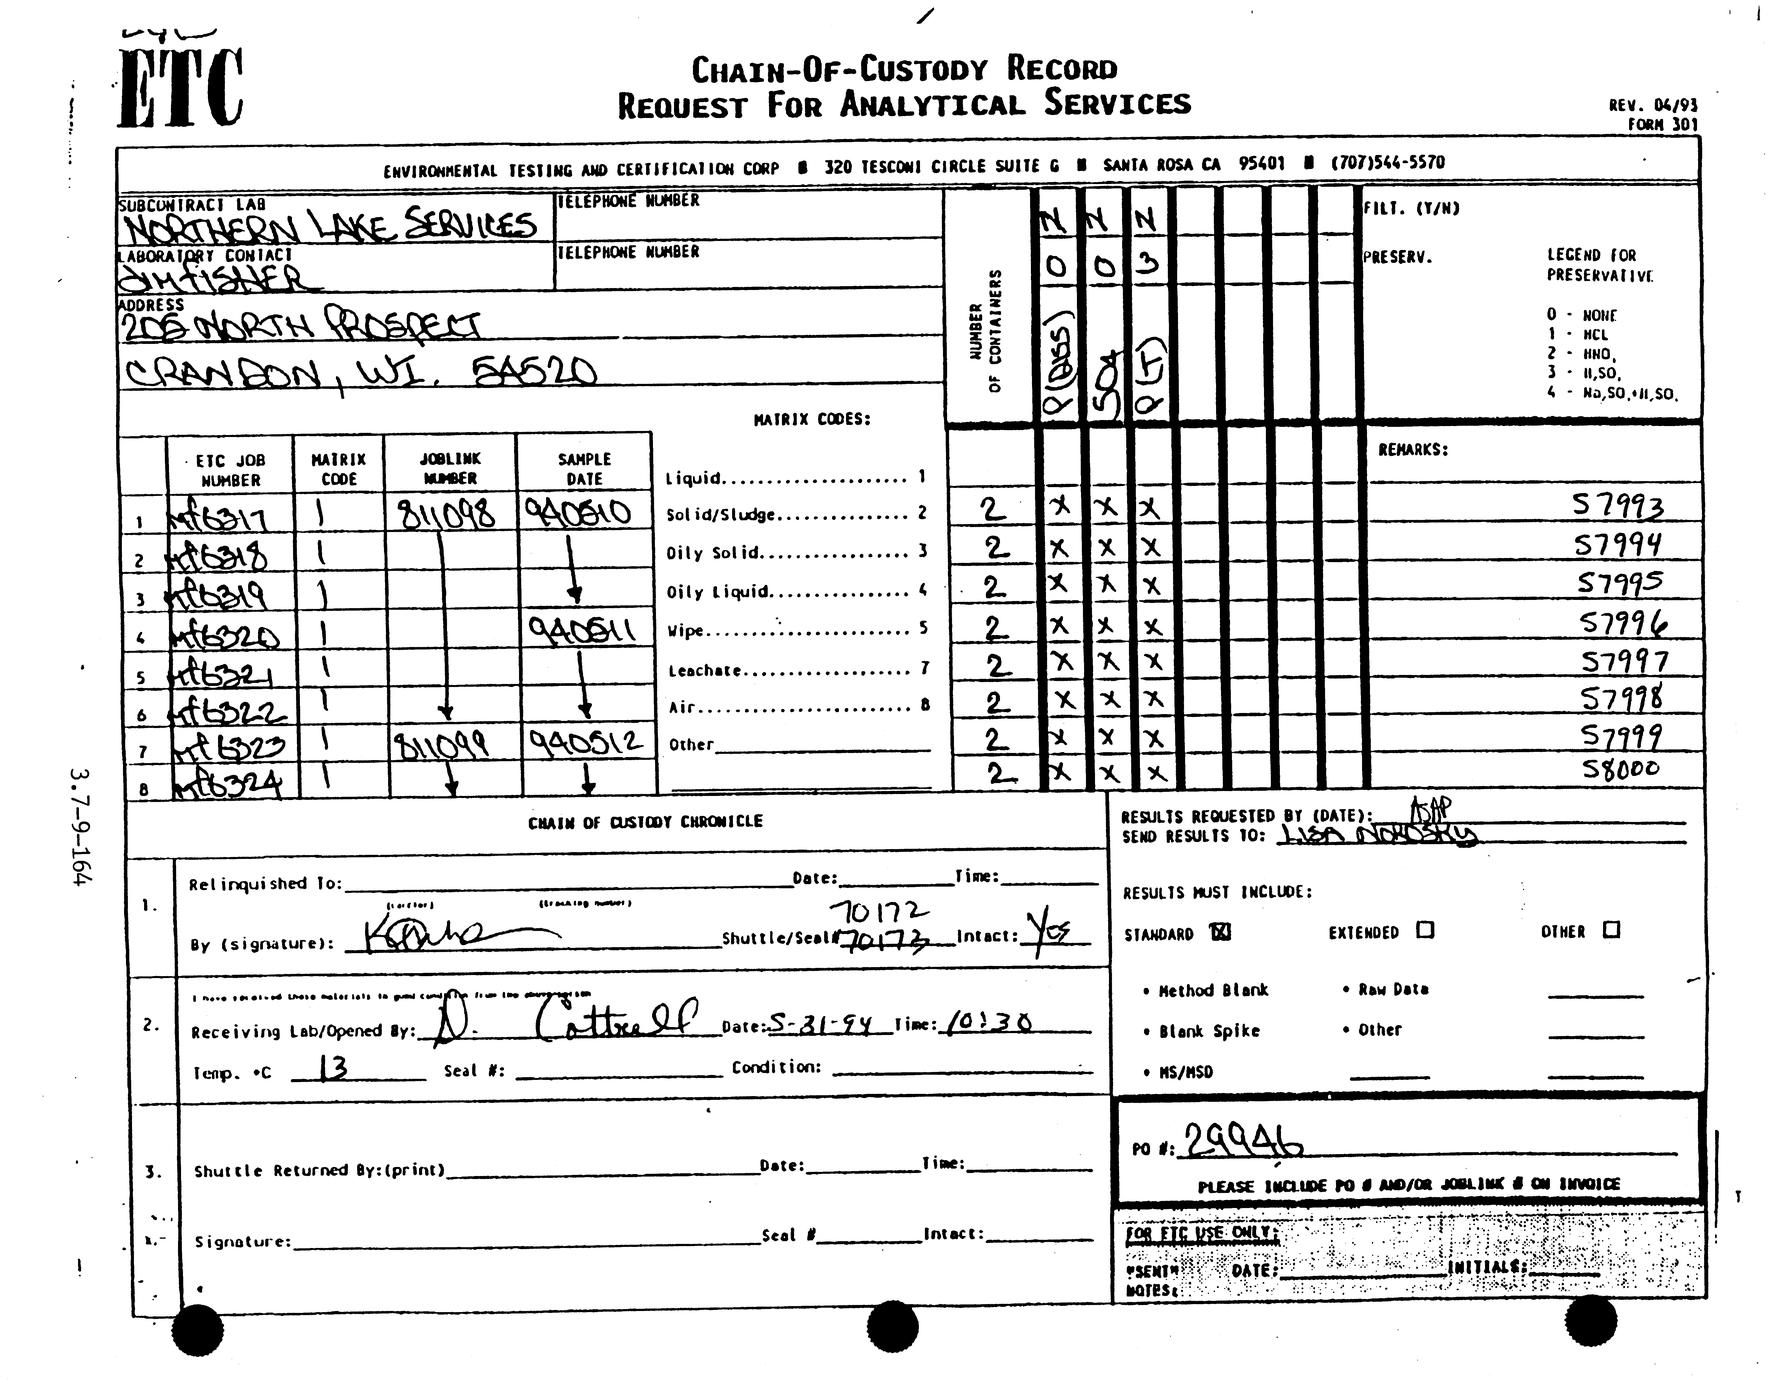 ETC
CHAIN-OF-CUSTODY RECORD
REQUEST FOR ANALYTICAL SERVICES
REV. 04/93
FORM 301
ENVIRONMENTAL TESTING AND CERTIFICATION CORP ■ 320 TESCONI CIRCLE SUITE G ■ SANTA ROSA CA 95401 ■ (707)544-5570
SUBCONTRACT LAB
NORTHERN LAKE SERVICES
TELEPHONE NUMBER
LABORATORY CONTACT
JIM FISHER
TELEPHONE NUMBER
ADDRESS
205 NORTH PROSPECT
CRANDON, WI. 54520
NUMBER OF CONTAINERS
N N N
0 0 3
P(DISS) SO4 P(T)
FILT. (Y/N)
PRESERV.
LEGEND FOR
PRESERVATIVE
0 - NONE
1 - HCL
2 - HNO,
3 - H,SO,
4 - Na,SO,+H,SO,
MATRIX CODES:
Liquid..................... 1
Solid/Sludge............... 2
Oily Solid................. 3
Oily Liquid................ 4
Wipe....................... 5
Leachate................... 7
Air........................ 8
Other
ETC JOB NUMBER MATRIX CODE JOBLINK NUMBER SAMPLE DATE REMARKS:
1 Mf6317 1 811098 940510 2 X X X 57993
2 Mf6318 1 2 X X X 57994
3 Mf6319 1 2 X X X 57995
4 Mf6320 1 940511 2 X X X 57996
5 Mf6321 1 2 X X X 57997
6 Mf6322 1 2 X X X 57998
7 Mf6323 1 811099 940512 2 X X X 57999
8 Mf6324 1 2 X X X 58000
3.7-9-164
CHAIN OF CUSTODY CHRONICLE
1.
Relinquished To: Date: Time:
(carrier) (tracking number)
70172
By (signature): Shuttle/Seal# 70173 Intact: Yes
2.
I have received these materials in good condition from the above person
Receiving Lab/Opened By: D. Cottrell Date: 5-31-94 Time: 10:30
Temp. °C 13 Seal #: Condition:
3.
Shuttle Returned By:(print) Date: Time:
Signature: Seal # Intact:
RESULTS REQUESTED BY (DATE): ASAP
SEND RESULTS TO: LISA NOROSKY
RESULTS MUST INCLUDE:
STANDARD ☒ EXTENDED ☐ OTHER ☐
• Method Blank • Raw Data
• Blank Spike • Other
• MS/MSD
PO #: 29946
PLEASE INCLUDE PO # AND/OR JOBLINK # ON INVOICE
FOR ETC USE ONLY:
"SENT" DATE: INITIALS:
NOTES: